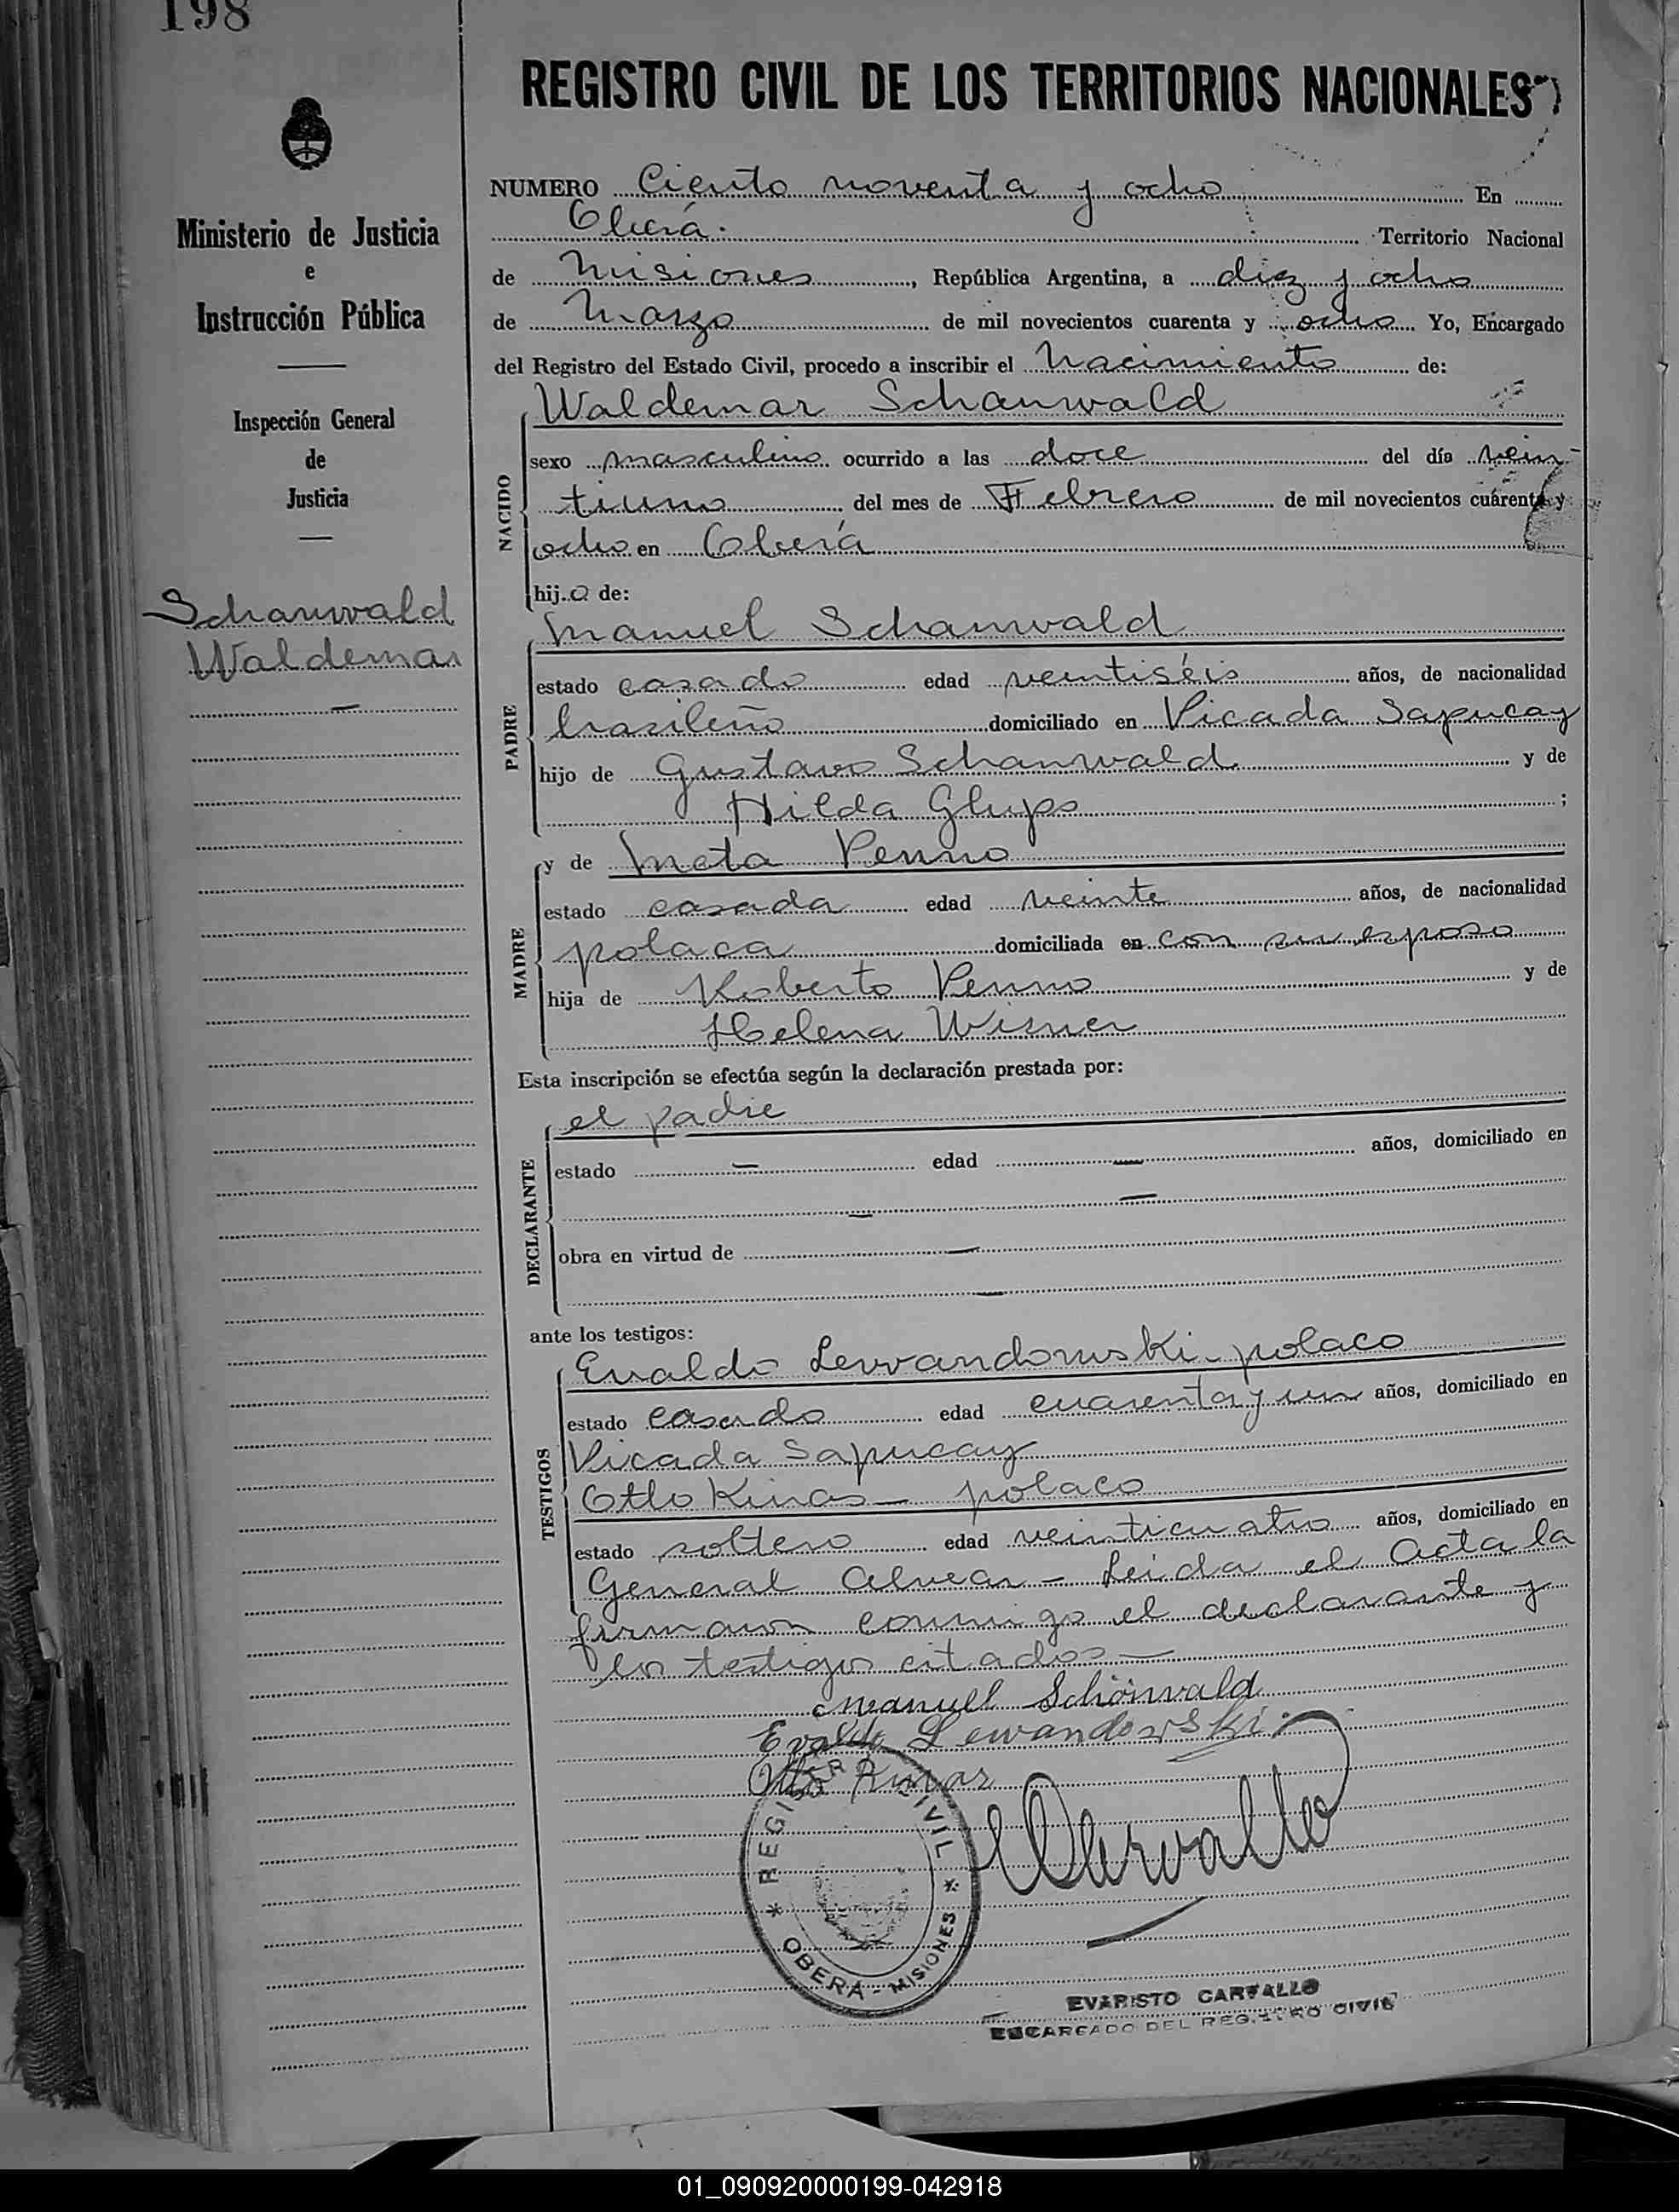 198
REGISTRO CIVIL DE LOS TERRITORIOS NACIONALES
Ministerio de Justicia
e
Instrucción Pública
Inspección General
de
Justicia
Schanwald
Waldemar
NUMERO Ciento noventa y ocho En
Oberá. Territorio Nacional
de Misiones, República Argentina, a diez y ocho
de Marzo de mil novecientos cuarenta y ocho Yo, Encargado
del Registro del Estado Civil, procedo a inscribir el Nacimiento de:
NACIDO
Waldemar Schanwald
sexo masculino ocurrido a las doce del día vein-
tiuno del mes de Febrero de mil novecientos cuarenta y
ocho en Oberá
hijo de:
PADRE
Manuel Schanwald
estado casado edad veintiséis años, de nacionalidad
brasileño domiciliado en Picada Sapucay
hijo de Gustavo Schanwald y de
Hilda Glups;
MADRE
y de Meta Penno
estado casada edad veinte años, de nacionalidad
polaca domiciliada en con su esposo
hija de Roberto Penno y de
Helena Wisner
Esta inscripción se efectúa según la declaración prestada por:
DECLARANTE
el padre
estado — edad — años, domiciliado en
— —
obra en virtud de —
—
ante los testigos:
TESTIGOS
Evaldo Lewandowski - polaco
estado casado edad cuarenta y un años, domiciliado en
Picada Sapucay
Otto Kinas — polaco
estado soltero edad veinticuatro años, domiciliado en
General Alvear — Leida el Acta la
firmaron conmigo el declarante y
los testigos citados —
Manuel Schönwald
Evaldo Lewandowski
Otto Kinas
Carvallo
REGISTRO CIVIL
OBERA - MISIONES
EVARISTO CARVALLO
ENCARGADO DEL REGISTRO CIVIL
01_090920000199-042918